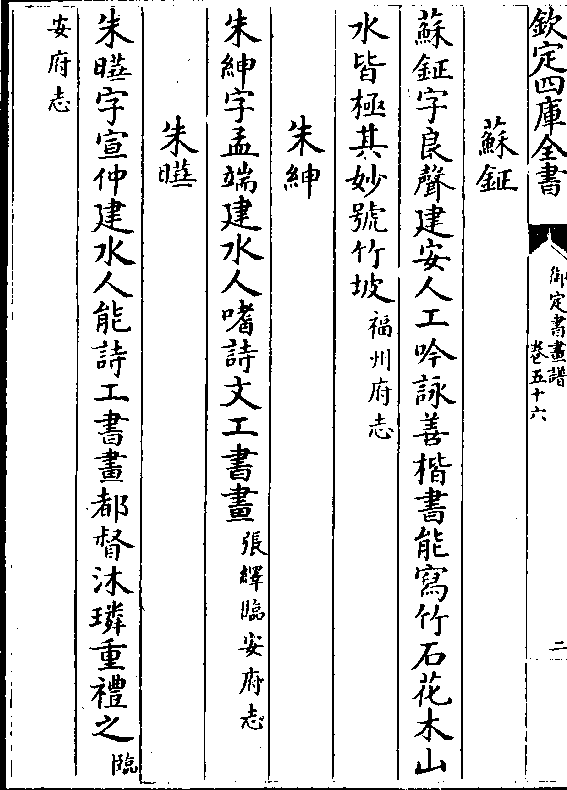 欽定四庫全書
御定書畫譜
卷五十六
二
蘇鉦
蘇鉦字良聲建安人工吟詠善楷書能寫竹石花木山
水皆極其妙號竹坡福州府志
朱紳
朱紳字孟端建水人嗜詩文工書畫張繹臨安府志
朱㬢
朱㬢字宣仲建水人能詩工書畫都督沐璘重禮之臨
安府志